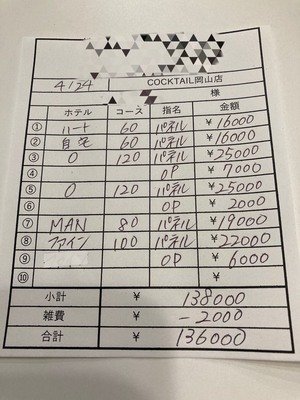 4/24 COCKTAIL岡山店
様
ホテル コース 指名 金額
① ハート 60 パネル ¥16000
② 自宅 60 パネル ¥16000
③ O 120 パネル ¥25000
④ OP ¥7000
⑤ O 120 パネル ¥25000
⑥ OP ¥2000
⑦ MAN 80 パネル ¥19000
⑧ ファイン 100 パネル ¥22000
⑨ OP ¥6000
⑩ ¥
小計 ¥ 138000
雑費 ¥ -2000
合計 ¥ 136000